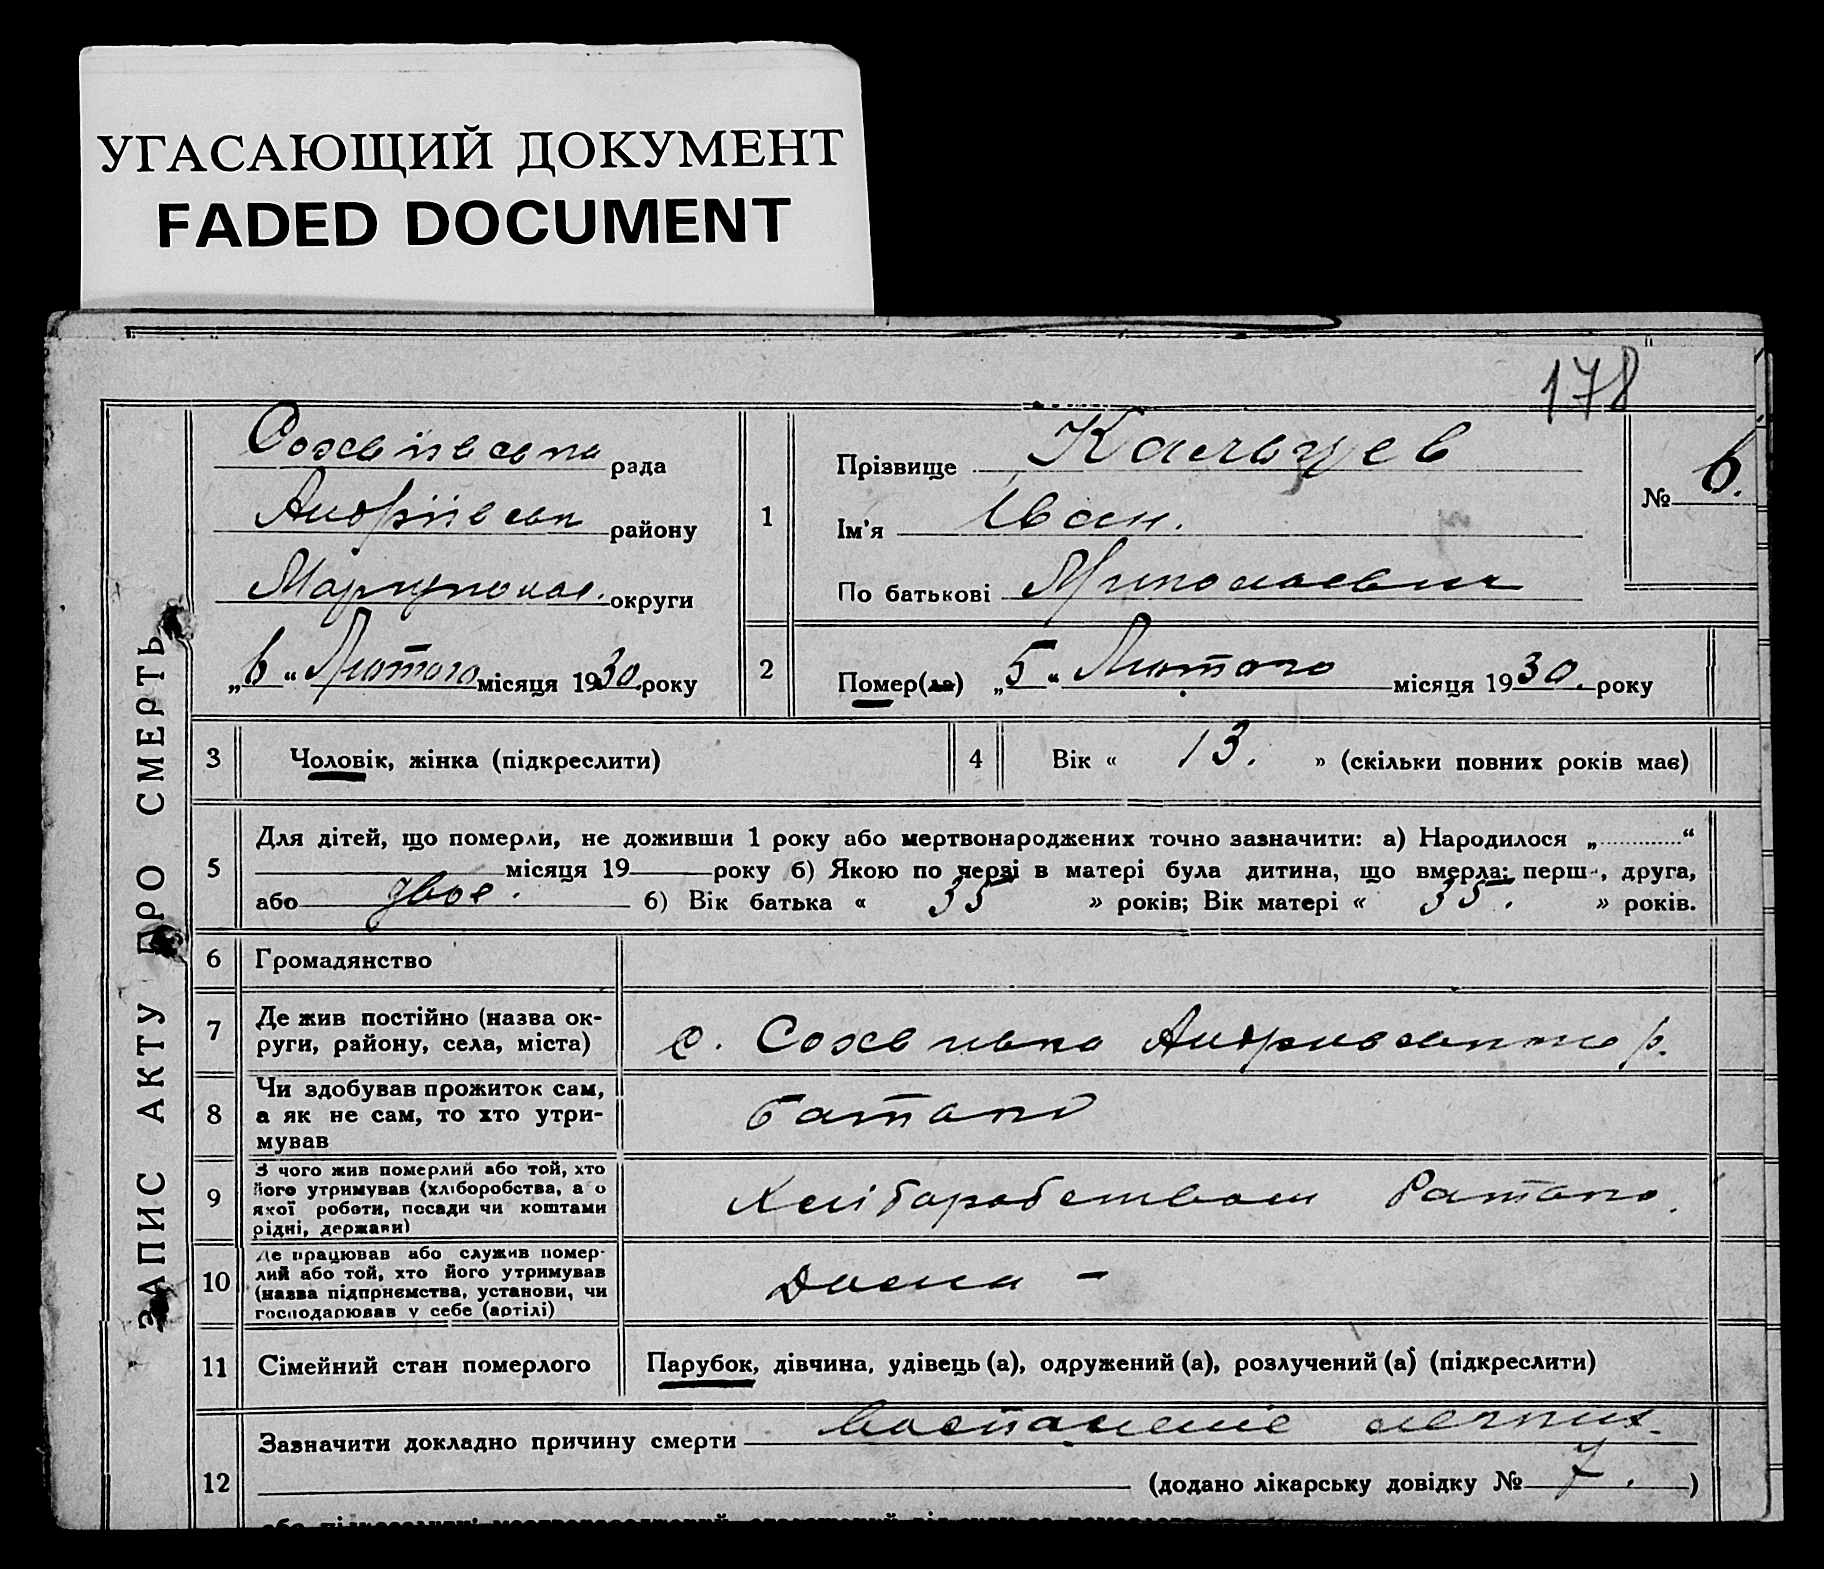 УГАСАЮЩИЙ ДОКУМЕНТ
FADED DOCUMENT
178
ЗАПИС АКТУ ПРО СМЕРТЬ
рада
району
округи
„6“ Лютого місяця 1930 року
1
Прізвище Кальцев
Ім'я Іван.
По батькові
№ 6.
2
Помер(ла) „5“ Лютого місяця 1930. року
3
Чоловік, жінка (підкреслити)
4
Вік « 13. » (скільки повних років має)
5
Для дітей, що померли, не доживши 1 року або мертвонароджених точно зазначити: а) Народилося „ “
місяця 19 року б) Якою по черзі в матері була дитина, що вмерла: перш-, друга,
або двое. б) Вік батька « 35 » років; Вік матері « 35. » років.
6
Громадянство
7
Де жив постійно (назва ок-
руги, району, села, міста)
с. р.
8
Чи здобував прожиток сам,
а як не сам, то хто утри-
мував
батько
9
З чого жив померлий або той, хто
його утримував (хліборобства, а о
якої роботи, посади чи коштами
рідні, держави)
Хлібаробством батько.
10
Де працював або служив помер-
лий або той, хто його утримував
(назва підприємства, установи, чи
господарював у себе (артілі)
Дома -
11
Сімейний стан померлого
Парубок, дівчина, удівець (а), одружений (а), розлучений (а) (підкреслити)
12
Зазначити докладно причину смерти легких.
(додано лікарську довідку № 7. )